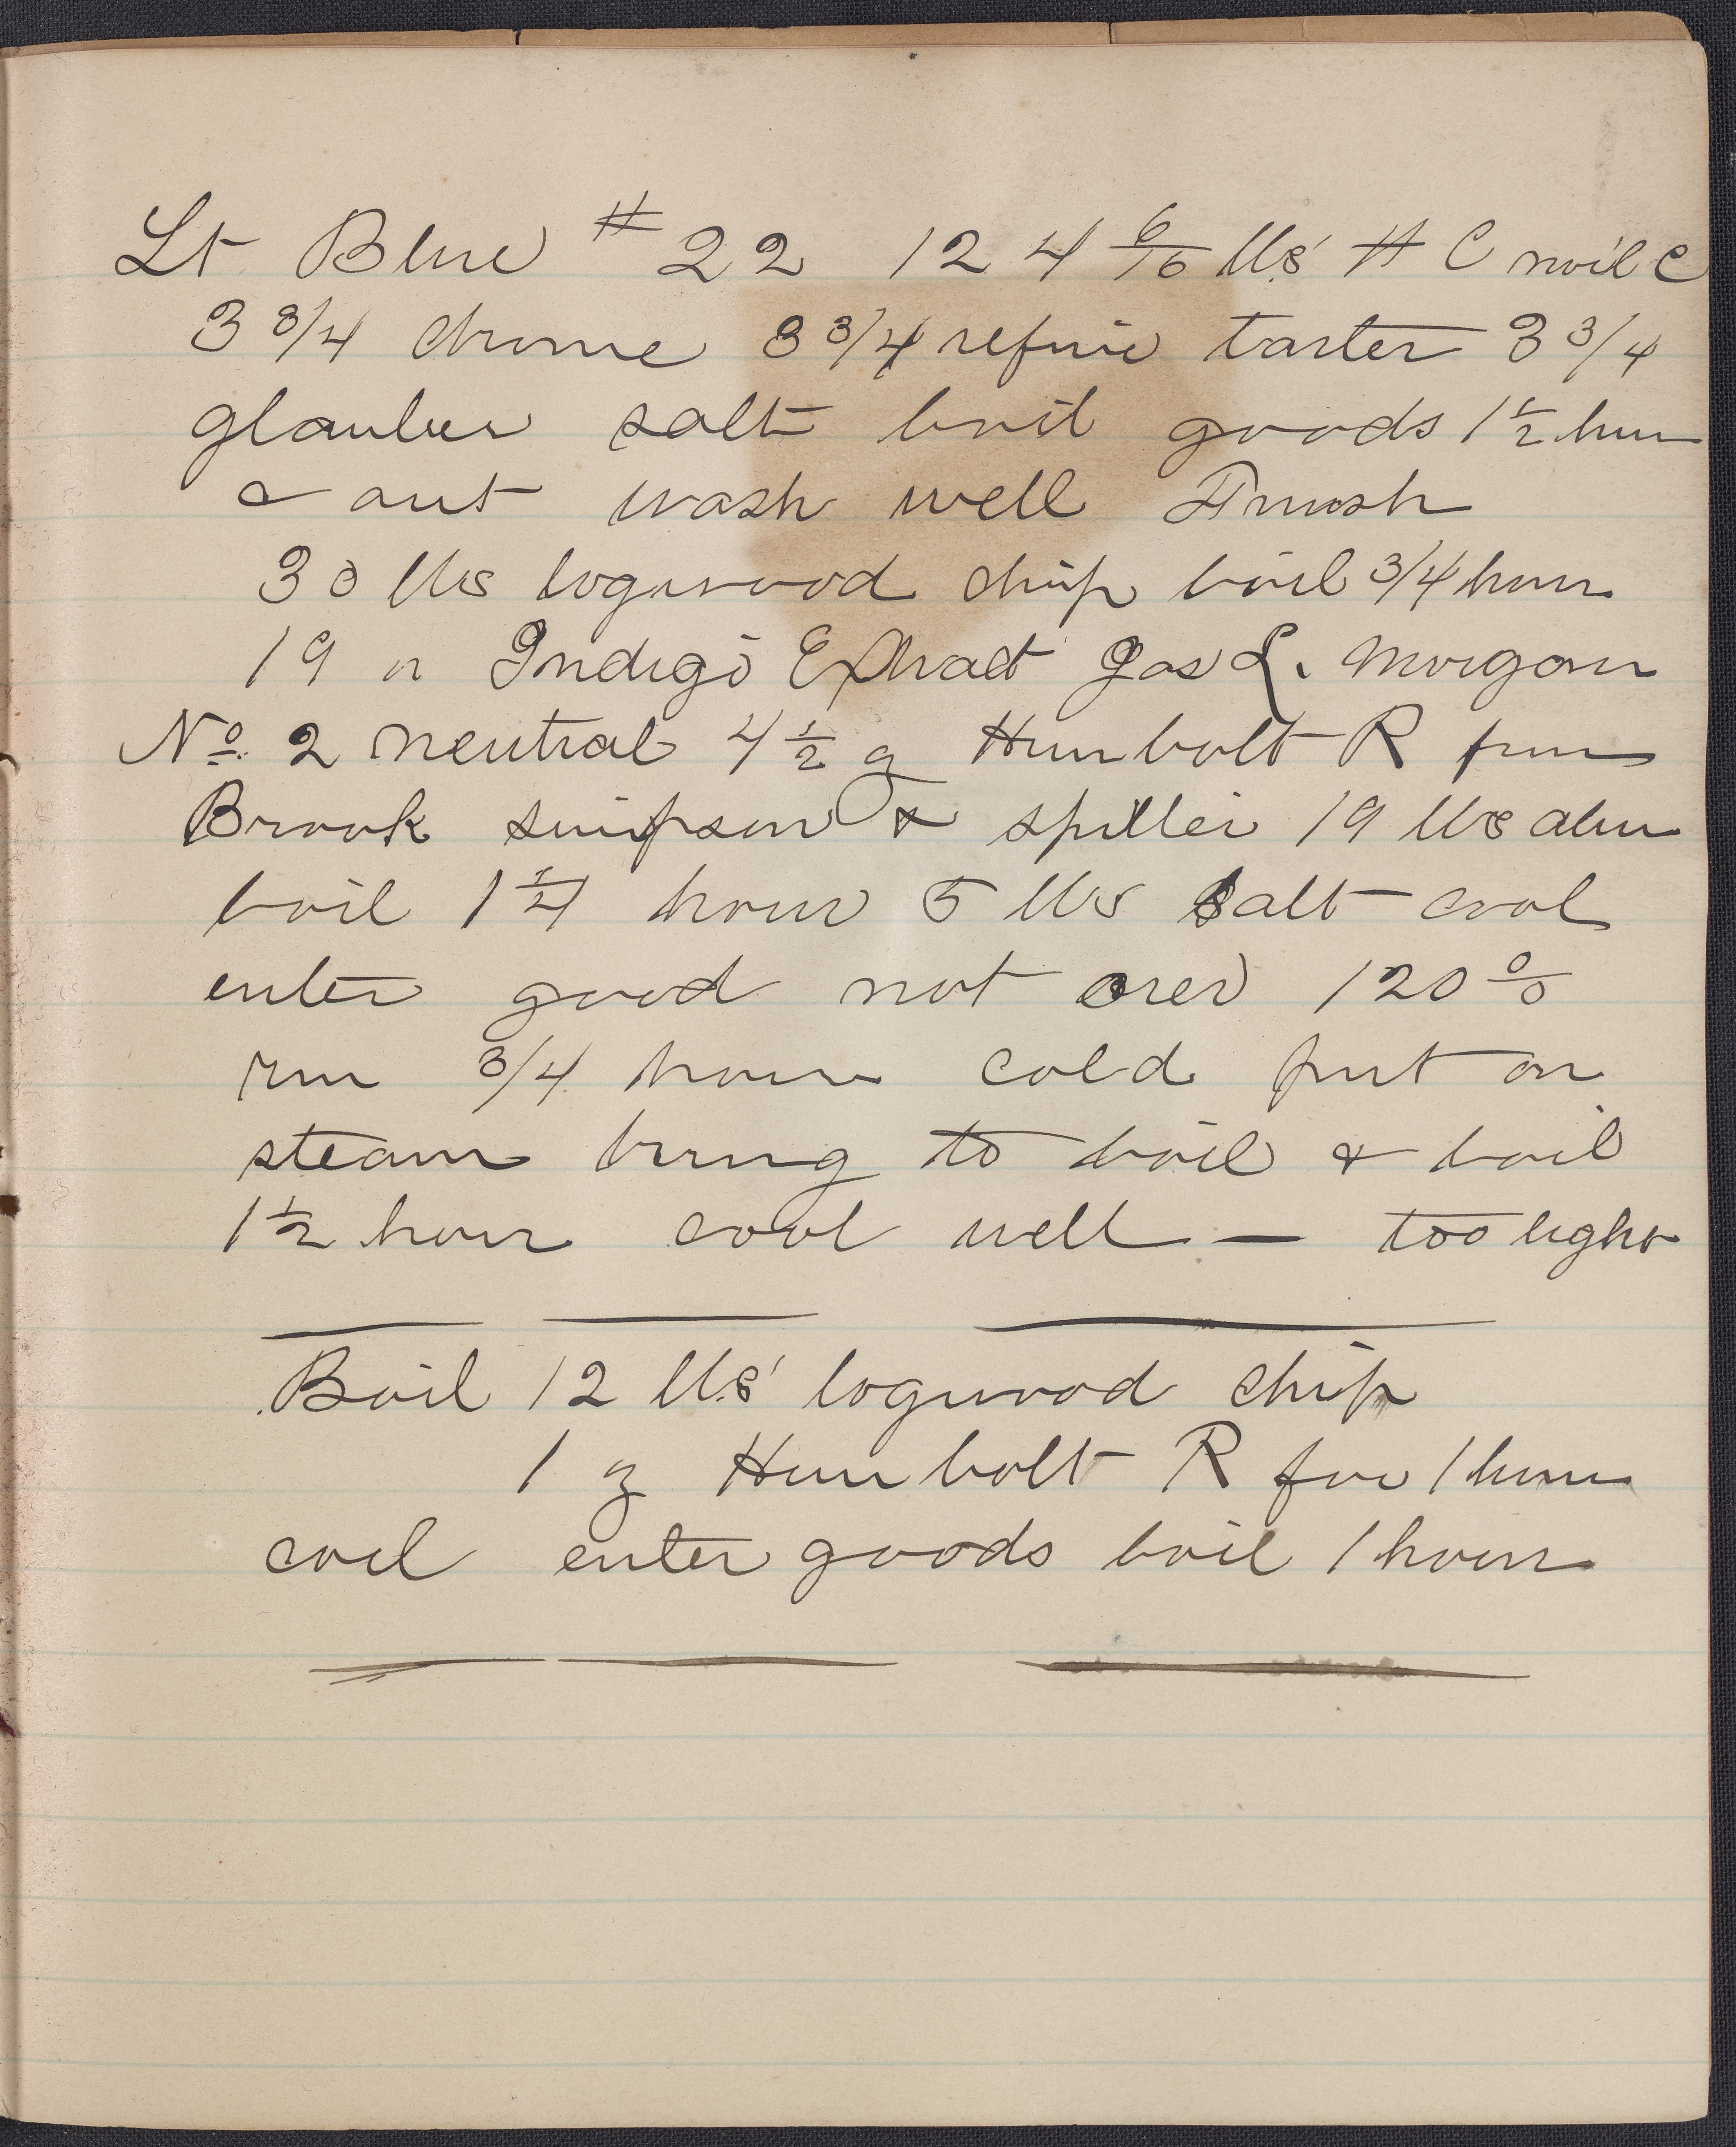 Lt Blue # 22 124 6/10 lbs # C noil C
3 3/4 chrome 3 3/4 refine tarter 3 3/4
glauber salt boil goods 1 1/2 hour
& out wash well Finish
30 lbs logwood chip boil 3/4 hour
19 " Indigo Extract Jas L. Morgan
No. 2 neutral 4 1/2 oz Humbolt R from
Brook simpson & spiller 19 lbs alum
boil 1 1/4 hour 5 lbs salt cool
enter good not over 120 %
run 3/4 hour cold put on
steam bring to boil & boil
1 1/2 hour cool well — too light
Boil 12 lbs logwood chip
1 oz Humbolt R for 1 hour
cool enter goods boil 1 hour